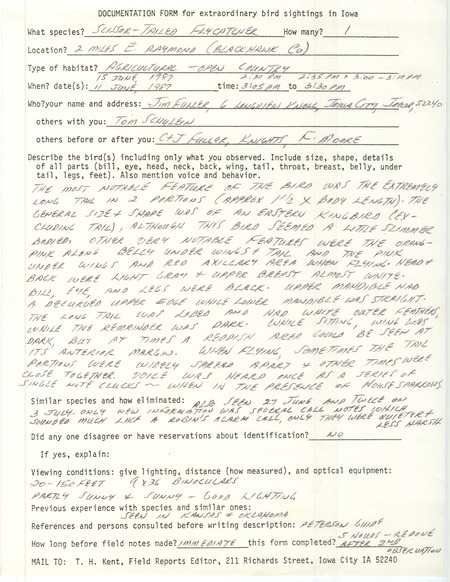 DOCUMENTATION FORM for extraordinary bird sightings in Iowa
What species? SCISSOR-TAILED FLYCATCHER How many? 1
Location? 2 MILES E. RAYMOND (BLACKHAWK CO)
Type of habitat? AGRICULTURAL - OPEN COUNTRY
15 JUNE, 1987 2:30 PM 2:55 PM & 3:00 - 3:10 PM
When? date(s): 11 JUNE, 1987 time: 3:05 PM to 3:30 PM
Who? your name and address: JIM FULLER, 6 LONGVIEW KNOLL, IOWA CITY, IOWA, 52240
others with you: TOM SCHULEIN
others before or after you: C+J FULLER, KNIGHTS, F. MOORE
Describe the bird(s) including only what you observed. Include size, shape, details
of all parts (bill, eye, head, neck, back, wing, tail, throat, breast, belly, under
tail, legs, feet). Also mention voice and behavior.
THE MOST NOTABLE FEATURE OF THE BIRD WAS THE EXTREMELY
LONG TAIL IN 2 PORTIONS (APPROX 1 1/2 X BODY LENGTH). THE
GENERAL SIZE & SHAPE WAS OF AN EASTERN KINGBIRD (EX-
CLUDING TAIL), ALTHOUGH THIS BIRD SEEMED A LITTLE SLIMMER
BODIED. OTHER VERY NOTABLE FEATURES WERE THE ORANGE-
PINK ALONG BELLY UNDER WINGS & TAIL AND THE PINK
UNDER WINGS AND RED AXILLARY AREA WHEN FLYING. HEAD &
BACK WERE LIGHT GRAY & UPPER BREAST ALMOST WHITE.
BILL, EYE, AND LEGS WERE BLACK. UPPER MANDIBLE HAD
A DECURVED UPPER EDGE WHILE LOWER MANDIBLE WAS STRAIGHT.
THE LONG TAIL WAS LOBED AND HAD WHITE OUTER FEATHERS,
WHILE THE REMAINDER WAS DARK. WHILE SITTING, WING WAS
DARK, BUT AT TIMES A REDDISH AREA COULD BE SEEN AT
ITS ANTERIOR MARGIN. WHEN FLYING, SOMETIMES THE TAIL
PORTIONS WERE WIDELY SPREAD APART & OTHER TIMES WERE
CLOSE TOGETHER. VOICE WAS HEARD ONCE AS A SERIES OF
SINGLE NOTE CLUCKS - WHEN IN THE PRESENCE OF HOUSE SPARROWS
Similar species and how eliminated: ALSO SEEN 27 JUNE AND TWICE ON
3 JULY. ONLY NEW INFORMATION WAS SEVERAL CALL NOTES WHICH
SOUNDED MUCH LIKE A ROBIN'S ALARM CALL, ONLY THEY WERE QUIETER &
LESS HARSH.
Did any one disagree or have reservations about identification? NO
If yes, explain:
Viewing conditions: give lighting, distance (how measured), and optical equipment:
20-150 FEET 9X36 BINOCULARS
PARTLY SUNNY & SUNNY - GOOD LIGHTING
Previous experience with species and similar ones:
SEEN IN KANSAS & OKLAHOMA
References and persons consulted before writing description: PETERSON GUIDE
5 HOURS - REDONE
How long before field notes made? IMMEDIATE this form completed? AFTER 2ND
OBSERVATION
MAIL TO: T. H. Kent, Field Reports Editor, 211 Richards Street, Iowa City IA 52240